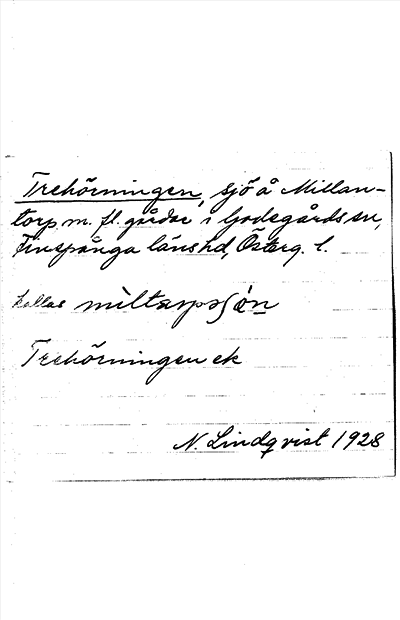 Trehörningen, sjö å Millan-
torp m. fl. gårdar i Godegårds sn,
Finspånga läns hd, Österg. l.
kallas
Trehörningen ek
N. Lindqvist 1928